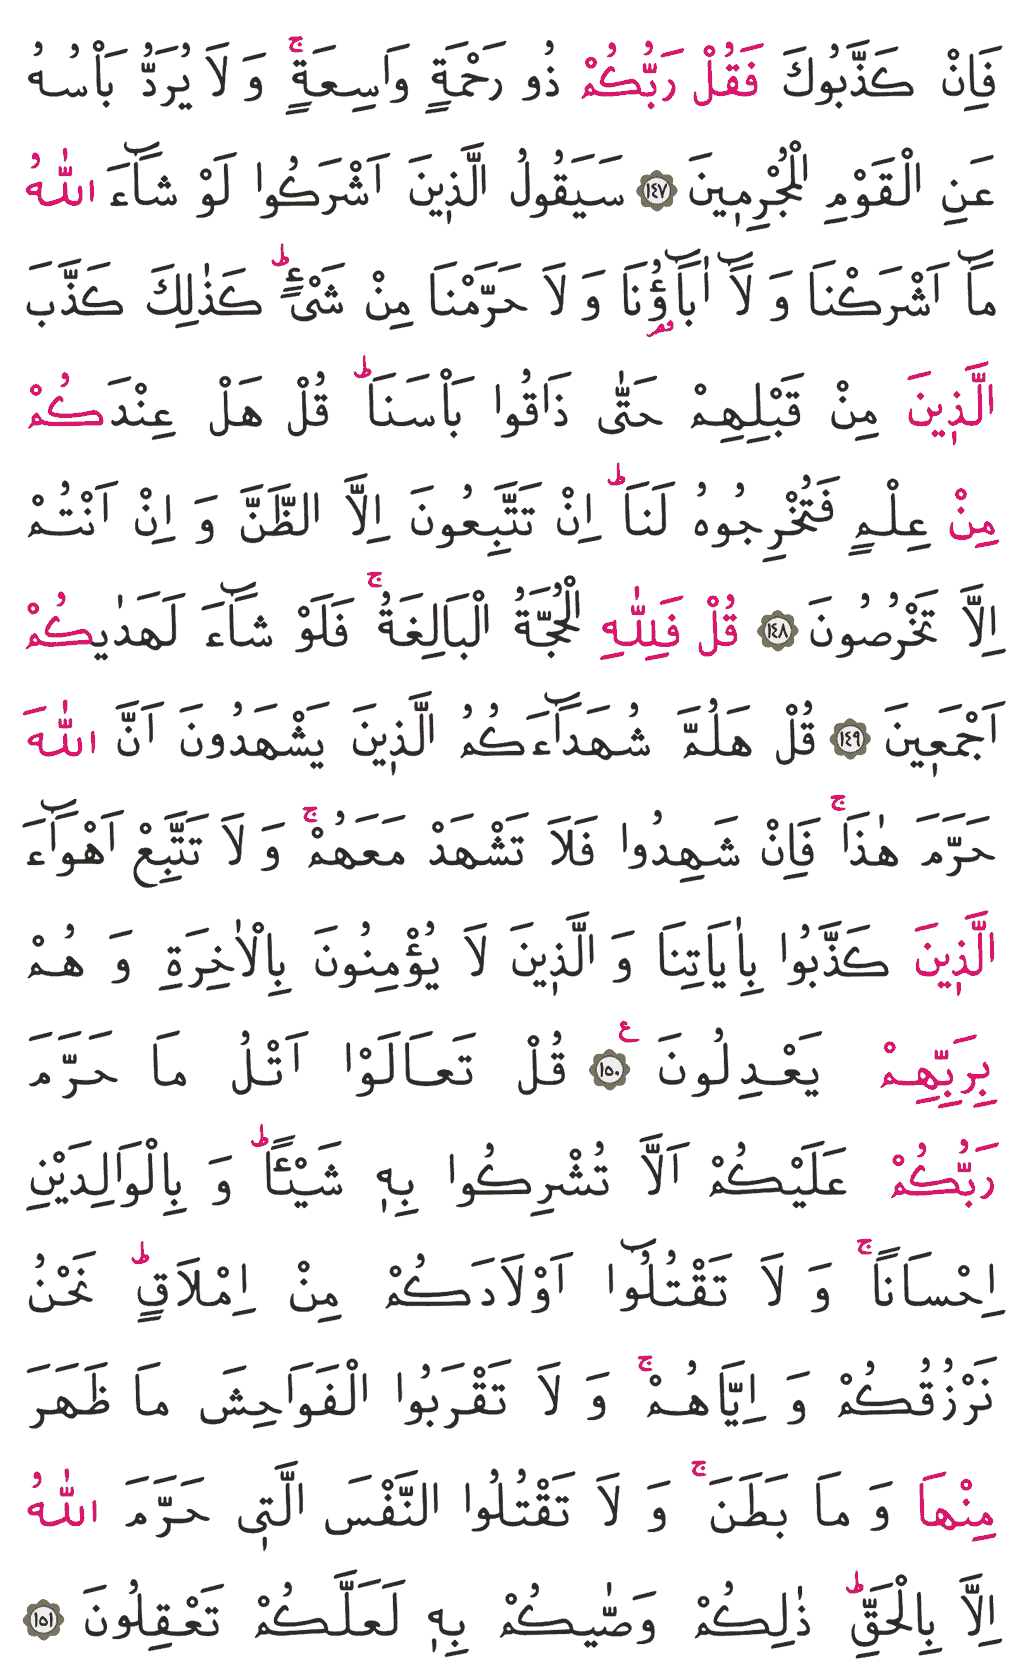 فَاِنْ كَذَّبُوكَ فَقُلْ رَبُّكُمْ ذُو رَحْمَةٍ وَاسِعَةٍۚ وَ لَا يُرَدُّ بَأْسُهُ
عَنِ الْقَوْمِ الْمُجْرِمٖينَ ﴿١٤٧﴾ سَيَقُولُ الَّذٖينَ اَشْرَكُوا لَوْ شَٓاءَ اللّٰهُ
مَٓا اَشْرَكْنَا وَ لَٓا اٰبَٓاؤُ۬نَا وَ لَا حَرَّمْنَا مِنْ شَىْءٍؕ كَذٰلِكَ كَذَّبَ
الَّذٖينَ مِنْ قَبْلِهِمْ حَتّٰى ذَاقُوا بَأْسَنَاؕ قُلْ هَلْ عِنْدَكُمْ
مِنْ عِلْمٍ فَتُخْرِجُوهُ لَنَاؕ اِنْ تَتَّبِعُونَ اِلَّا الظَّنَّ وَ اِنْ اَنْتُمْ
اِلَّا تَخْرُصُونَ ﴿١٤٨﴾ قُلْ فَلِلّٰهِ الْحُجَّةُ الْبَالِغَةُۚ فَلَوْ شَٓاءَ لَهَدٰيكُمْ
اَجْمَعٖينَ ﴿١٤٩﴾ قُلْ هَلُمَّ شُهَدَٓاءَكُمُ الَّذٖينَ يَشْهَدُونَ اَنَّ اللّٰهَ
حَرَّمَ هٰذَاۚ فَاِنْ شَهِدُوا فَلَا تَشْهَدْ مَعَهُمْۚ وَ لَا تَتَّبِعْ اَهْوَٓاءَ
الَّذٖينَ كَذَّبُوا بِاٰيَاتِنَا وَ الَّذٖينَ لَا يُؤْمِنُونَ بِالْاٰخِرَةِ وَ هُمْ
بِرَبِّهِمْ يَعْدِلُونَ ﴿١٥٠﴾ ع قُلْ تَعَالَوْا اَتْلُ مَا حَرَّمَ
رَبُّكُمْ عَلَيْكُمْ اَلَّا تُشْرِكُوا بِهٖ شَيْـًٔاؕ وَ بِالْوَالِدَيْنِ
اِحْسَانًاۚ وَ لَا تَقْتُلُٓوا اَوْلَادَكُمْ مِنْ اِمْلَاقٍؕ نَحْنُ
نَرْزُقُكُمْ وَ اِيَّاهُمْۚ وَ لَا تَقْرَبُوا الْفَوَاحِشَ مَا ظَهَرَ
مِنْهَا وَ مَا بَطَنَۚ وَ لَا تَقْتُلُوا النَّفْسَ الَّتٖى حَرَّمَ اللّٰهُ
اِلَّا بِالْحَقِّؕ ذٰلِكُمْ وَصّٰيكُمْ بِهٖ لَعَلَّكُمْ تَعْقِلُونَ ﴿١٥١﴾